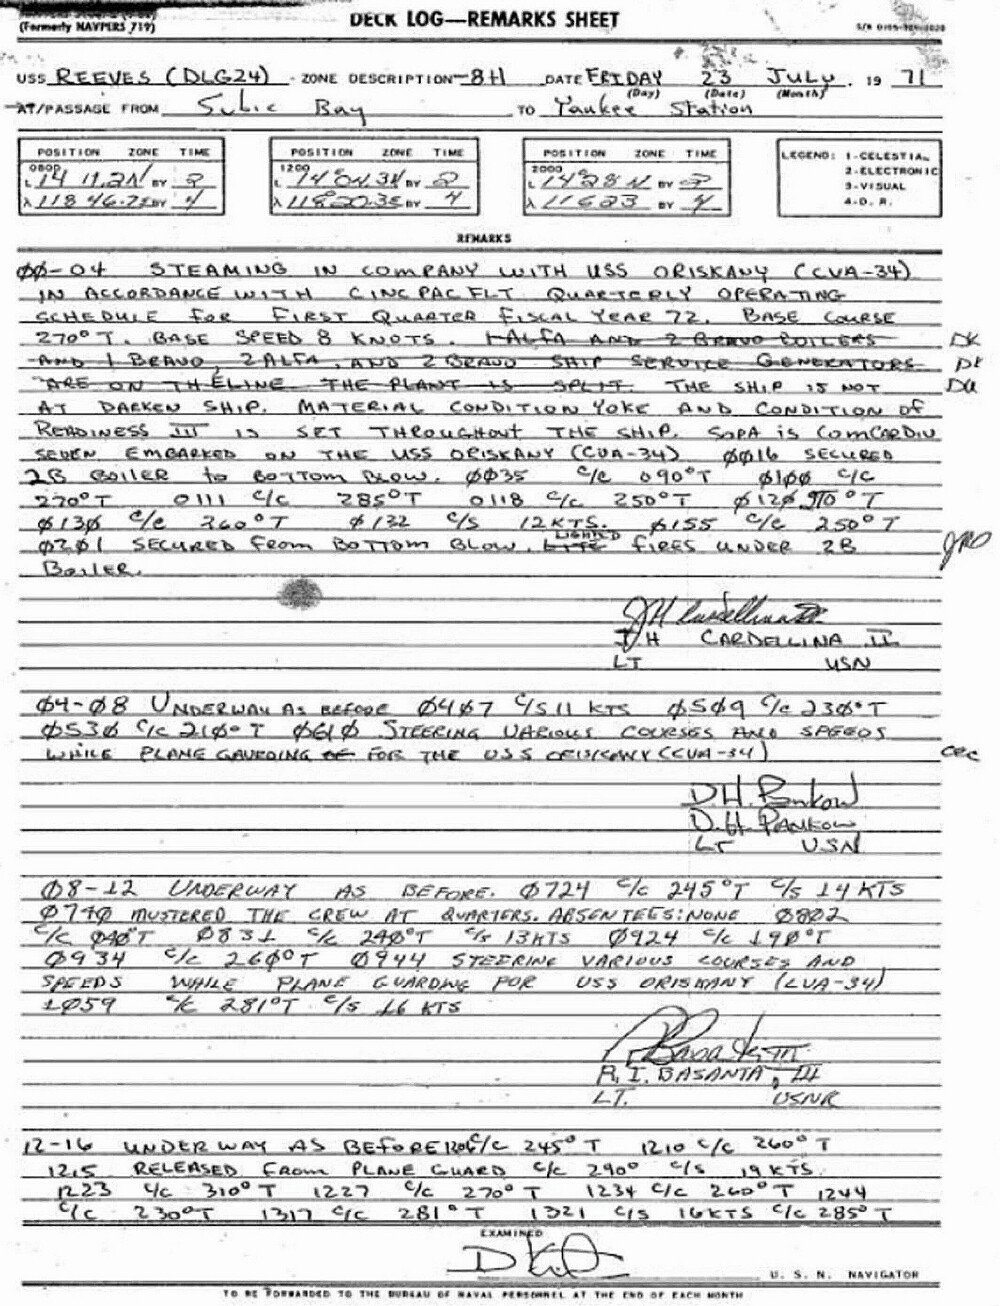 (Formerly NAVPERS 719)
DECK LOG—REMARKS SHEET
USS REEVES (DLG24) ZONE DESCRIPTION -8H DATE FRIDAY 23 JULY 19 71
(Day) (Date) (Month)
AT/PASSAGE FROM Subic Bay TO Yankee Station
POSITION ZONE TIME POSITION ZONE TIME POSITION ZONE TIME LEGEND: 1-CELESTIAL
0800 1200 2000 2-ELECTRONIC
L 14 11.2N BY 2 L 14 04.3N BY 2 L 14 28 N BY 2 3-VISUAL
λ 118 46.7E BY 4 λ 118 20.3E BY 4 λ 116 23 BY 4 4-D. R.
REMARKS
00-04 STEAMING IN COMPANY WITH USS ORISKANY (CVA-34)
IN ACCORDANCE WITH CINCPACFLT QUARTERLY OPERATING
SCHEDULE FOR FIRST QUARTER FISCAL YEAR 72. BASE COURSE
270°T. BASE SPEED 8 KNOTS. 1 ALFA AND 2 BRAVO BOILERS DK
AND 1 BRAVO, 2 ALFA, AND 2 BRAVO SHIP SERVICE GENERATORS DK
ARE ON THE LINE THE PLANT IS SPLIT. THE SHIP IS NOT DK
AT DARKEN SHIP. MATERIAL CONDITION YOKE AND CONDITION OF
READINESS III IS SET THROUGHOUT THE SHIP. SOPA IS COMCARDIV
SEVEN EMBARKED ON THE USS ORISKANY (CVA-34) 0016 SECURED
2B BOILER TO BOTTOM BLOW. 0035 C/C 090°T 0100 C/C
270°T 0111 C/C 285°T 0118 C/C 250°T 0120 270°T
0130 C/C 260°T 0132 C/S 12 KTS. 0155 C/C 250°T
0201 SECURED FROM BOTTOM BLOW. LITE LIGHTED FIRES UNDER 2B JHC
BOILER.
J H Cardellina II
J H CARDELLINA II
LT USN
04-08 UNDERWAY AS BEFORE 0407 C/S 11 KTS 0509 C/C 230°T
0530 C/C 210°T 0610 STEERING VARIOUS COURSES AND SPEEDS
WHILE PLANE GAURDING OF FOR THE USS ORISKANY (CVA-34)
D.H. Pankow
D.H. PANKOW
LT USN
08-12 UNDERWAY AS BEFORE. 0724 C/C 245°T C/S 14 KTS
0740 MUSTERED THE CREW AT QUARTERS. ABSENTEES: NONE 0802
C/C 040°T 0831 C/C 240°T C/S 13 KTS 0924 C/C 190°T
0934 C/C 260°T 0944 STEERING VARIOUS COURSES AND
SPEEDS WHILE PLANE GUARDING FOR USS ORISKANY (CVA-34)
1059 C/C 281°T C/S 16 KTS
R Basanta III
R. I. BASANTA, III
LT. USNR
12-16 UNDERWAY AS BEFORE 1206 C/C 245°T 1210 C/C 260°T
1215 RELEASED FROM PLANE GUARD C/C 290° C/S 19 KTS
1223 C/C 310°T 1227 C/C 270°T 1234 C/C 260°T 1244
C/C 230°T 1317 C/C 281°T 1321 C/S 16 KTS C/C 285°T
EXAMINED
U. S. N. NAVIGATOR
TO BE FORWARDED TO THE BUREAU OF NAVAL PERSONNEL AT THE END OF EACH MONTH